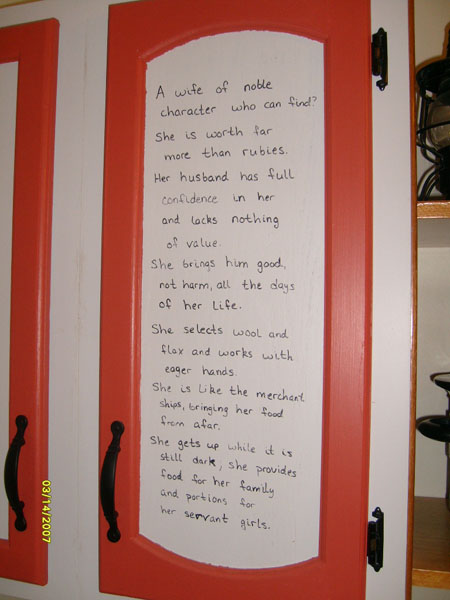 A wife of noble
character who can find?
She is worth far
more than rubies.
Her husband has full
confidence in her
and lacks nothing
of value.
She brings him good,
not harm, all the days
of her life.
She selects wool and
flax and works with
eager hands.
She is like the merchant
ships, bringing her food
from afar.
She gets up while it is
still dark; she provides
food for her family
and portions for
her servant girls.
03/14/2007